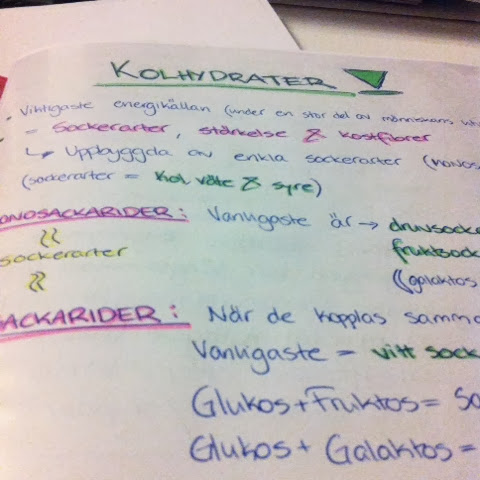 KOLHYDRATER
• Viktigaste energikällan (under en stor del av människans
= Sockerarter, stärkelse & kostfibrer
↳ Uppbyggda av enkla sockerarter (monos
(sockerarter = Kol, väte & syre)
ONOSACKARIDER: Vanligaste är → druvsocke
sockerarter
fruktsock
(galaktos
SACKARIDER: När de kopplas samma
Vanligaste = vitt sock
Glukos+Fruktos= Sa
Glukos+ Galaktos =